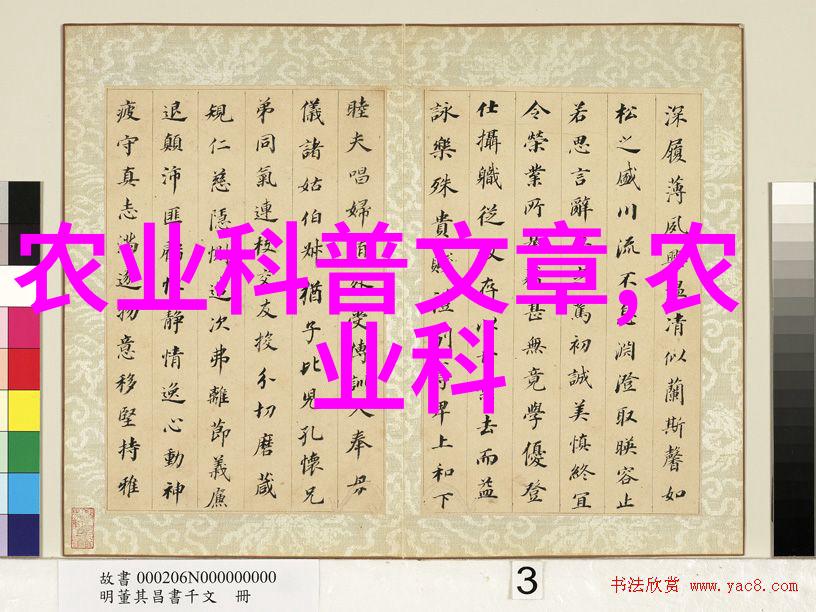 农业科普文章,农
业科
深履薄夙興温清似蘭斯馨如
松之盛川流不息淵澄取暎容止
若思言辭篤初誠美慎終宜
令榮業所甚無竟學優登
仕攝職從存去而益
詠樂殊貴賤禮別尊卑上和下
睦夫唱婦隨外受傅訓入奉母
儀諸姑伯叔猶子比兒孔懷兄
弟同氣連枝交友投分切磨箴
規仁慈隱惻造次弗離節義廉
退顛沛匪虧性靜情逸心動神
疲守真志滿逐物意移堅持雅
故書 000206N000000000
明董其昌書千文 冊
3
书法欣赏 www.yac8.com